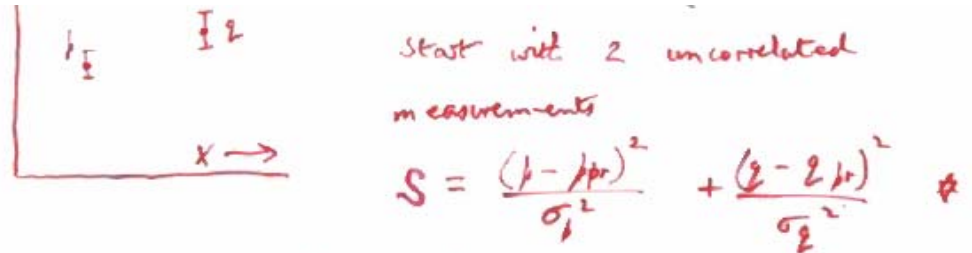 p
q
x →
Start with 2 uncorrelated
measurements
S = (p - ppr)² / σp² + (q - qpr)² / σq² *